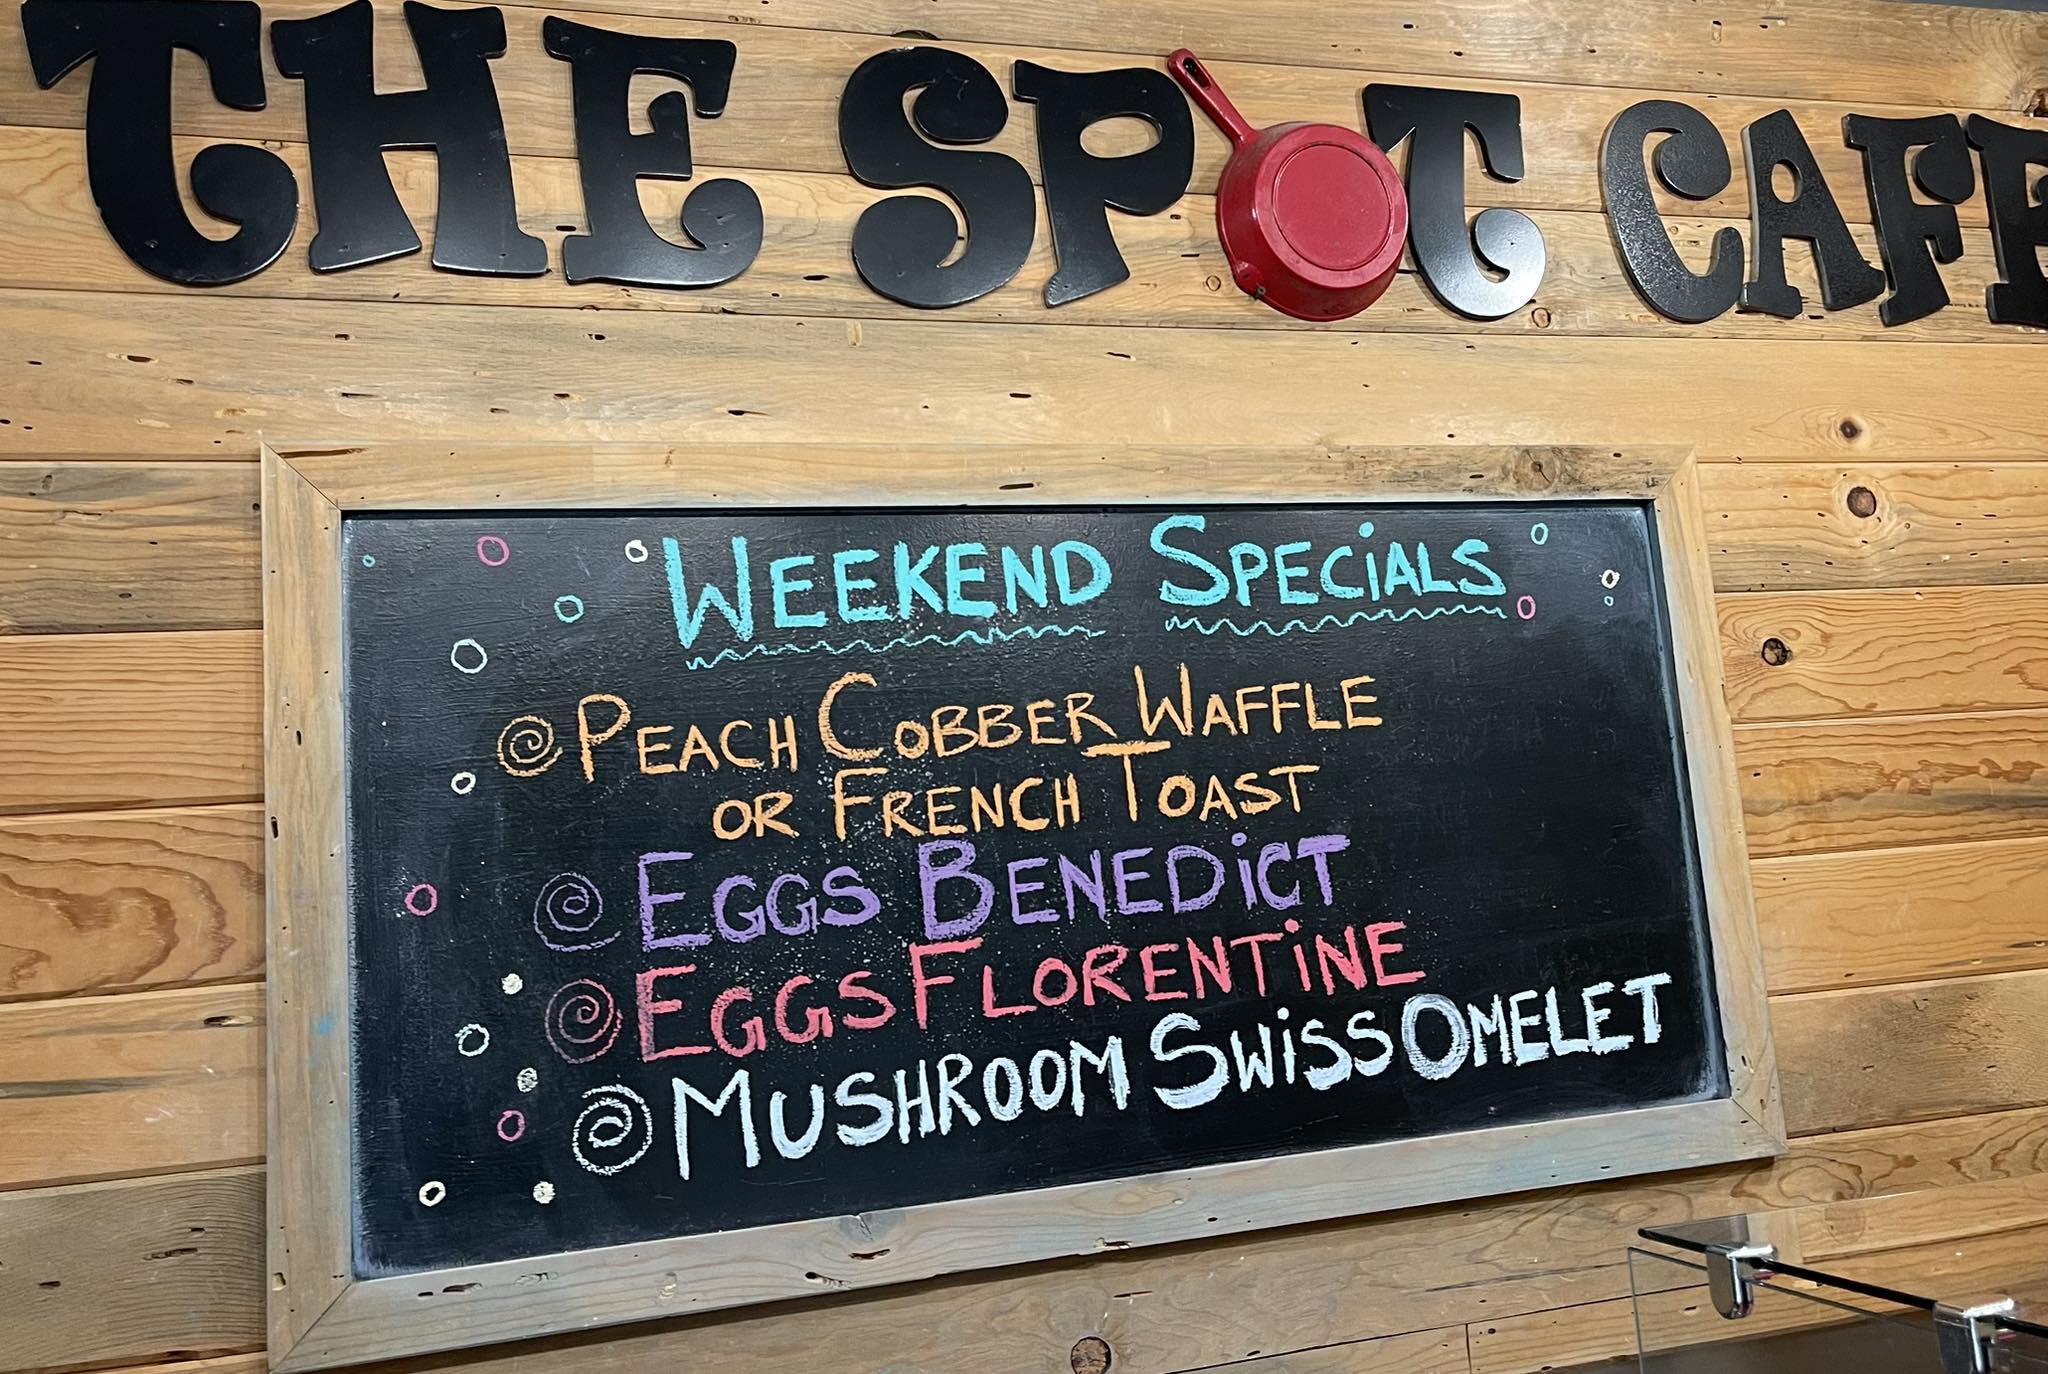 THE SPOT CAFE
WEEKEND SPECiALS
PEACH COBBER WAFFLE
OR FRENCH TOAST
EGGS BENEDiCT
EGGS FLORENTiNE
MUSHROOM SWiSS OMELET